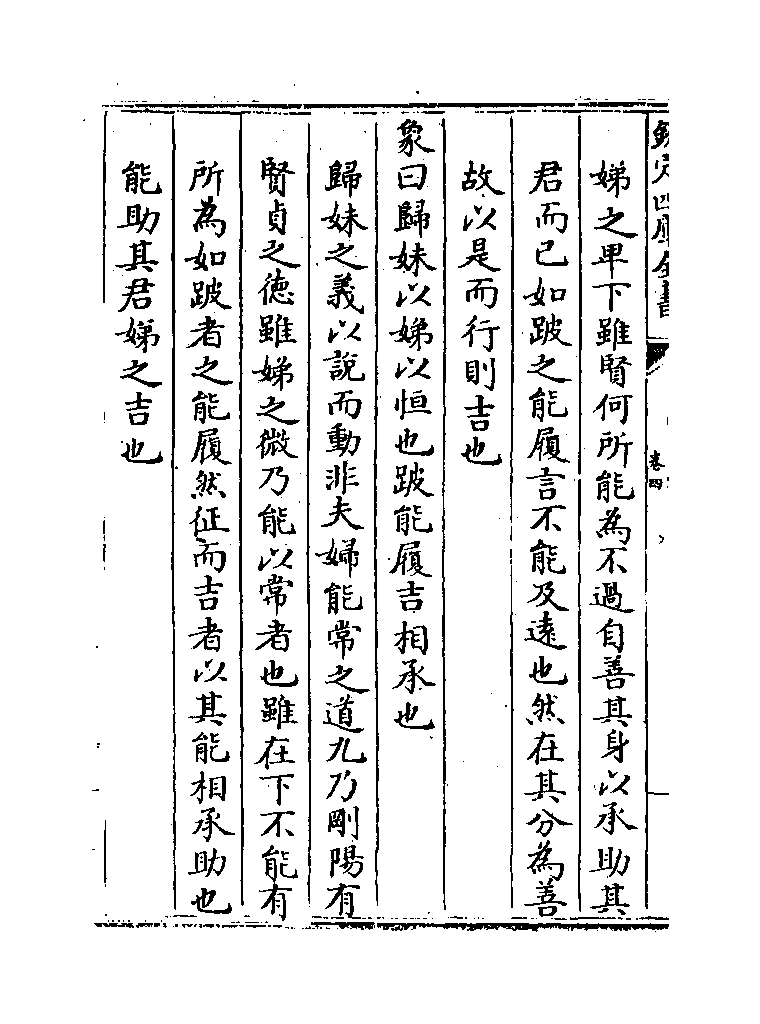 欽定四庫全書
卷四
娣之卑下雖賢何所能為不過自善其身以承助其
君而已如跛之能履言不能及遠也然在其分為善
故以是而行則吉也
象曰歸妹以娣以恒也跛能履吉相承也
歸妹之義以說而動非夫婦能常之道九乃剛陽有
賢貞之德雖娣之微乃能以常者也雖在下不能有
所為如跛者之能履然征而吉者以其能相承助也
能助其君娣之吉也